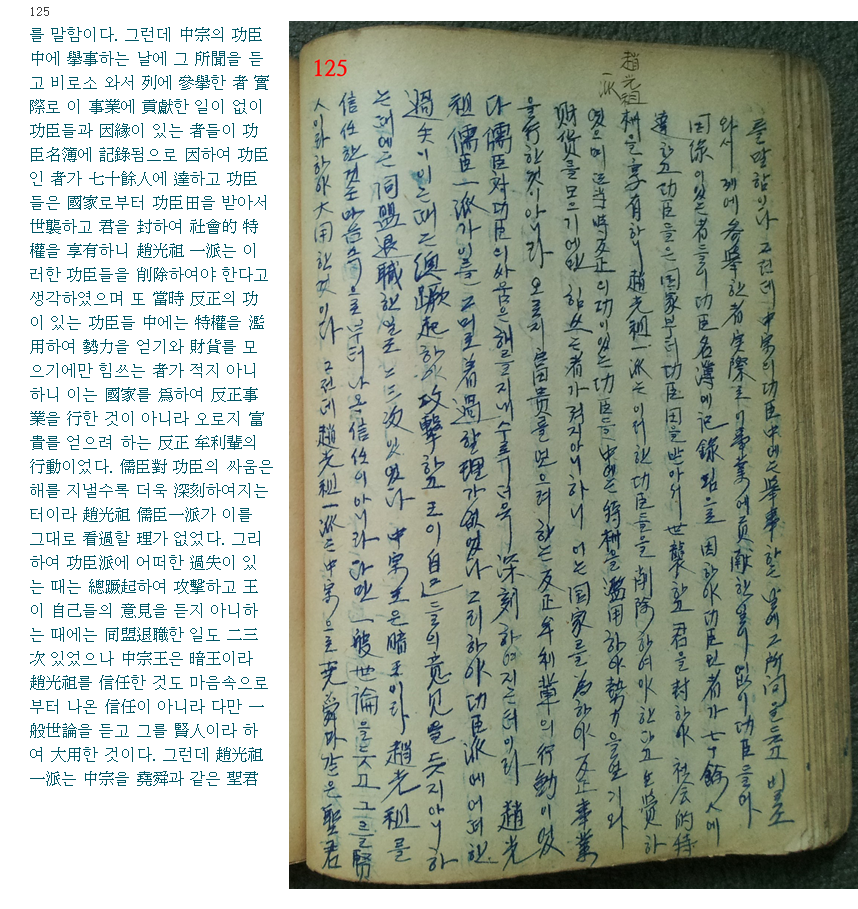 125
를 말함이다. 그런데 中宗의 功臣
中에 擧事하는 날에 그 所聞을 듣
고 비로소 와서 列에 參擧한 者 實
際로 이 事業에 貢獻한 일이 없이
功臣들과 因緣이 있는 者들이 功
臣名簿에 記錄됨으로 因하여 功臣
인 者가 七十餘人에 達하고 功臣
들은 國家로부터 功臣田을 받아서
世襲하고 君을 封하여 社會的 特
權을 享有하니 趙光祖 一派는 이
러한 功臣들을 削除하여야 한다고
생각하였으며 또 當時 反正의 功
이 있는 功臣들 中에는 特權을 濫
用하여 勢力을 얻기와 財貨를 모
으기에만 힘쓰는 者가 적지 아니
하니 이는 國家를 爲하여 反正事
業을 行한 것이 아니라 오로지 富
貴를 얻으려 하는 反正 牟利輩의
行動이었다. 儒臣對 功臣의 싸움은
해를 지낼수록 더욱 深刻하여지는
터이라 趙光祖 儒臣一派가 이를
그대로 看過할 理가 없었다. 그리
하여 功臣派에 어떠한 過失이 있
는 때는 總蹶起하여 攻擊하고 王
이 自己들의 意見을 듣지 아니하
는 때에는 同盟退職한 일도 二三
次 있었으나 中宗王은 暗王이라
趙光祖를 信任한 것도 마음속으로
부터 나온 信任이 아니라 다만 一
般世論을 듣고 그를 賢人이라 하
여 大用한 것이다. 그런데 趙光祖
一派는 中宗을 堯舜과 같은 聖君
125
趙光祖
派
를 말함이다 그런데 中宗의 功臣 中에는 擧事하는 날에 그 所聞을 듣고 비로소
와서 列에 參擧한 者 실際로 이 事業에 貢献한 일이 없이 功臣들과
因緣이 있는 者들이 功臣名簿에 記録됨으로 因하야 功臣인 者가 七十餘人에
達하고 功臣들은 国家로부터 功臣田을 받아서 世襲하고 君을 封하야 社会的 特
権을 享有하니 趙光祖 一派는 이러한 功臣들을 削除하여야 한다고 하
였으며 또 當時 反正의 功이 있는 功臣들 中에는 特権을 濫用하야 勢力을 얻기와
財貨를 모으기에만 힘쓰는 者가 적지 아니하니 이는 国家를 為하야 反正事業
을 行한 것이 아니라 오로지 富貴를 얻으려 하는 反正 牟利輩의 行動이었
다 儒臣対功臣의 싸움은 해를 지내수록 더욱 深刻하여지는 터이라 趙光
祖 儒臣一派가 이를 그대로 看過할 理가 없었다 그리하야 功臣派에 어떠한
過失이 있는 때는 總蹶起하야 攻擊하고 王이 自己들의 意見을 듯지 아니하
는 때에는 同盟退職한 일도 二三次 있었다 中宗王은 暗王이라 趙光祖를
信任한 것도 마음속으로부터 나온 信任이 아니라 다만 一般世論을 듯고 그를 賢
人이라 하야 大用한 것이다 그런데 趙光祖 一派는 中宗으로 堯舜과 같은 聖君